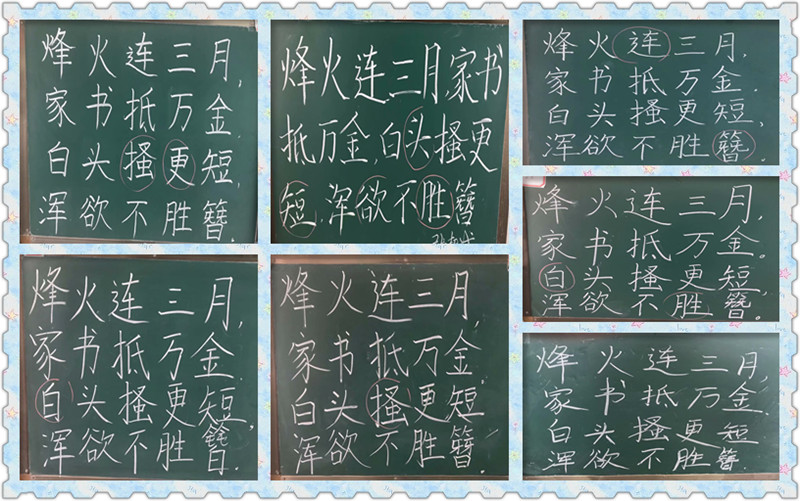 烽火连三月,
家书抵万金.
白头搔更短,
浑欲不胜簪.
烽火连三月,家书
抵万金,白头搔更
短,浑欲不胜簪
烽火连三月,
家书抵万金.
白头搔更短,
浑欲不胜簪.
烽火连三月,
家书抵万金.
白头搔更短,
浑欲不胜簪.
烽火连三月,
家书抵万金.
白头搔更短,
浑欲不胜簪.
烽火连三月,
家书抵万金.
白头搔更短,
浑欲不胜簪.
烽火连三月,
家书抵万金.
白头搔更短
浑欲不胜簪.